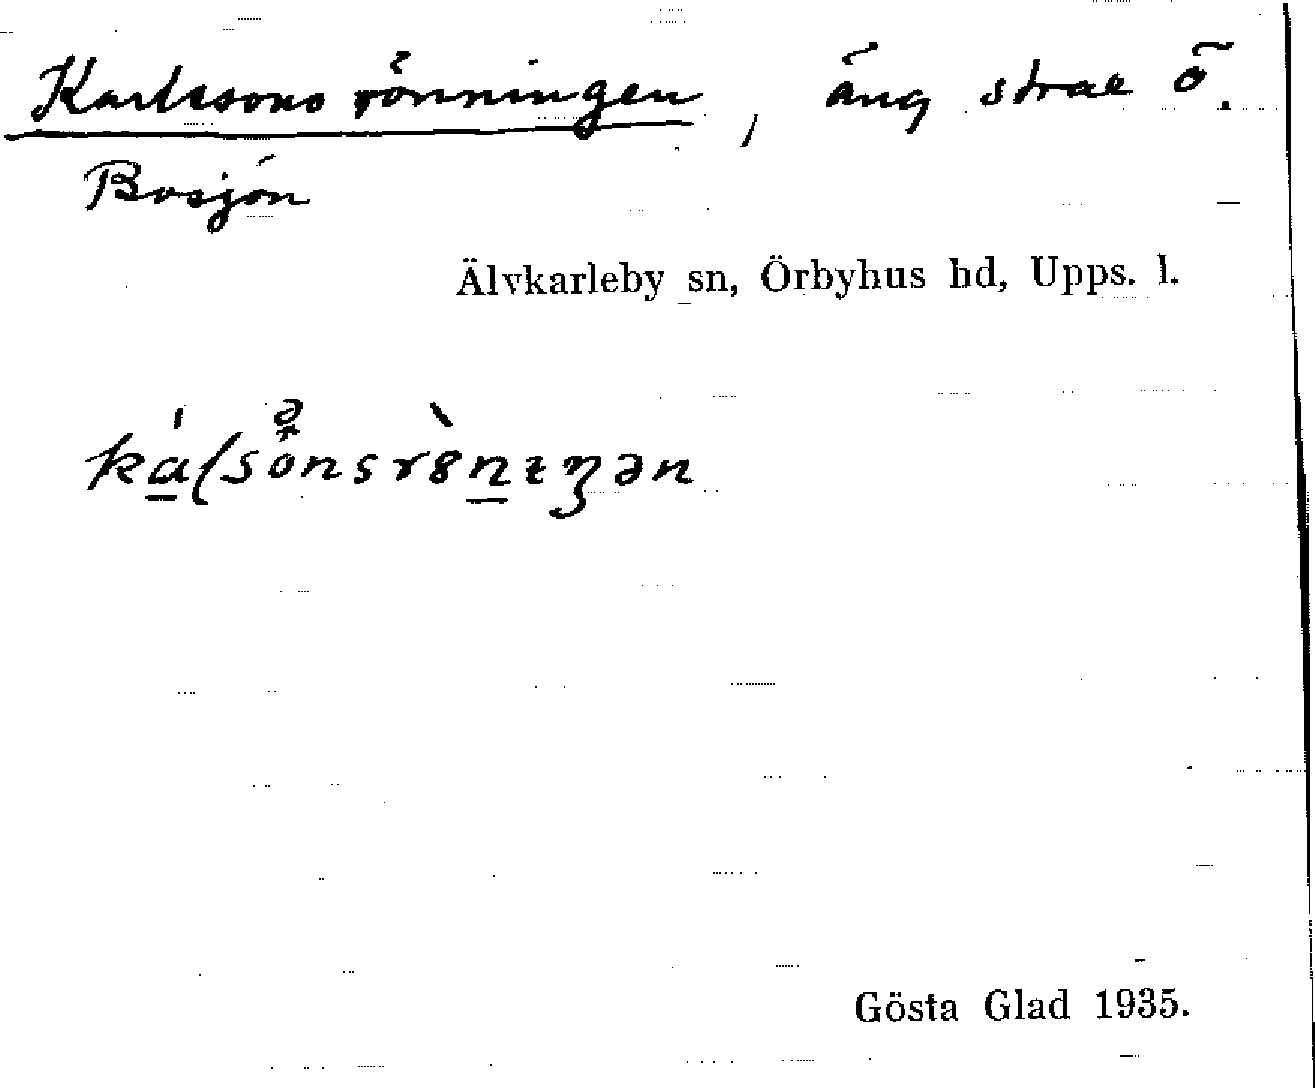 Karlssons rönningen, äng strax ö.
Bosjön
Älvkarleby sn, Örbyhus hd, Upps. l.
Gösta Glad 1935.